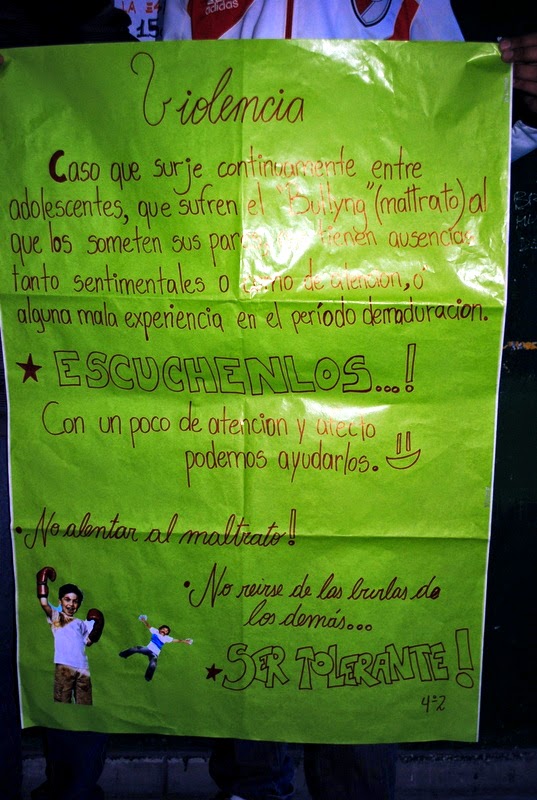 adidas
15
Violencia
Caso que surje continuamente entre
adolescentes, que sufren el "Bullyng" (maltrato) al
que los someten sus tienen ausencias
tanto sentimentales o de atencion, o
alguna mala experiencia en el período demaduracion.
ESCUCHENLOS...!
Con un poco de atencion y afecto
podemos ayudarlos.
• No alentar al maltrato!
• No reirse de las burlas de
los demás...
SER TOLERANTE!
4º2